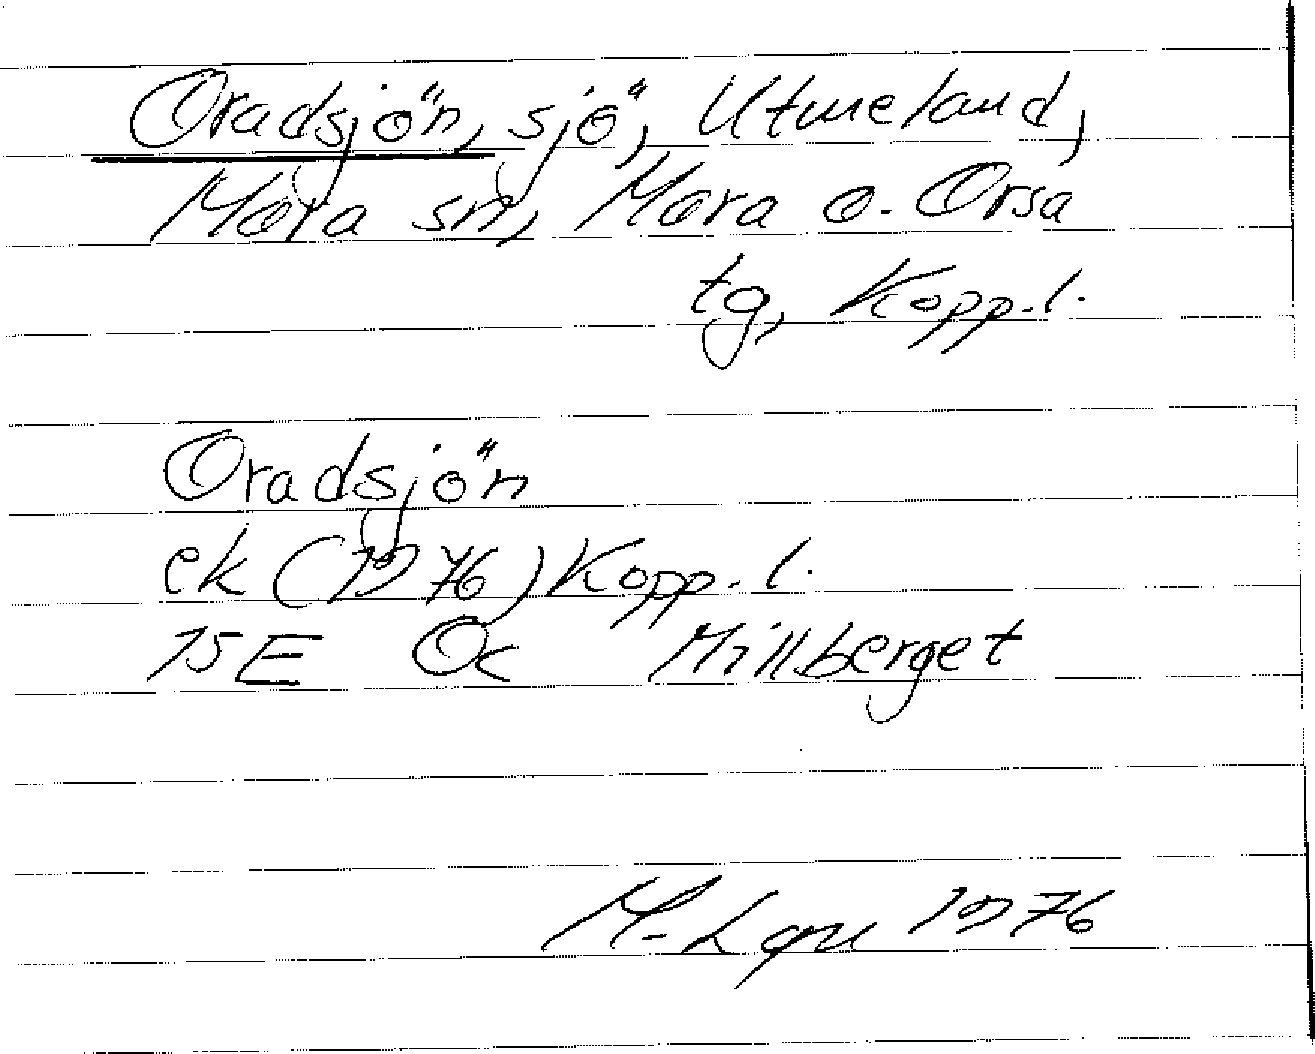 Oradsjön, sjö, Utmeland,
Mora sn, Mora o. Orsa
tg, Kopp.l.
Oradsjön
ek (1976) Kopp.l.
15E Oc Millberget
M. 1976